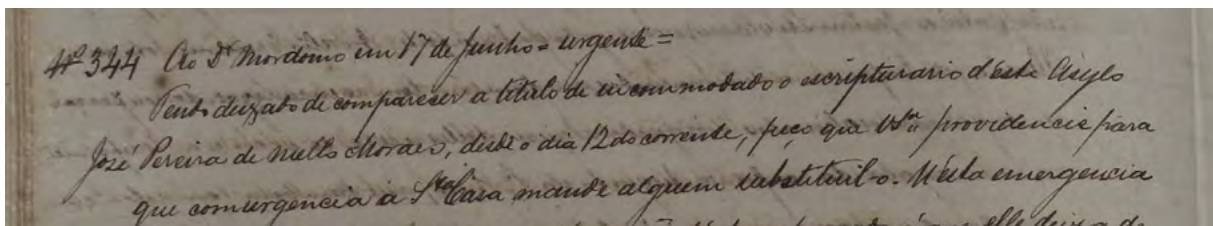 Nº 344 Ao Dr Mordomo em 17 de Junho = urgente =
Tendo deixado de compareser a titulo de incommodado o escripturario d'este Asylo
José Pereira de Mello Moraes, desde o dia 12 do corrente, peço que VSª providencie para
que com urgencia a Sta Casa mande alguem substituil-o. N'esta emergencia
elle deixa de